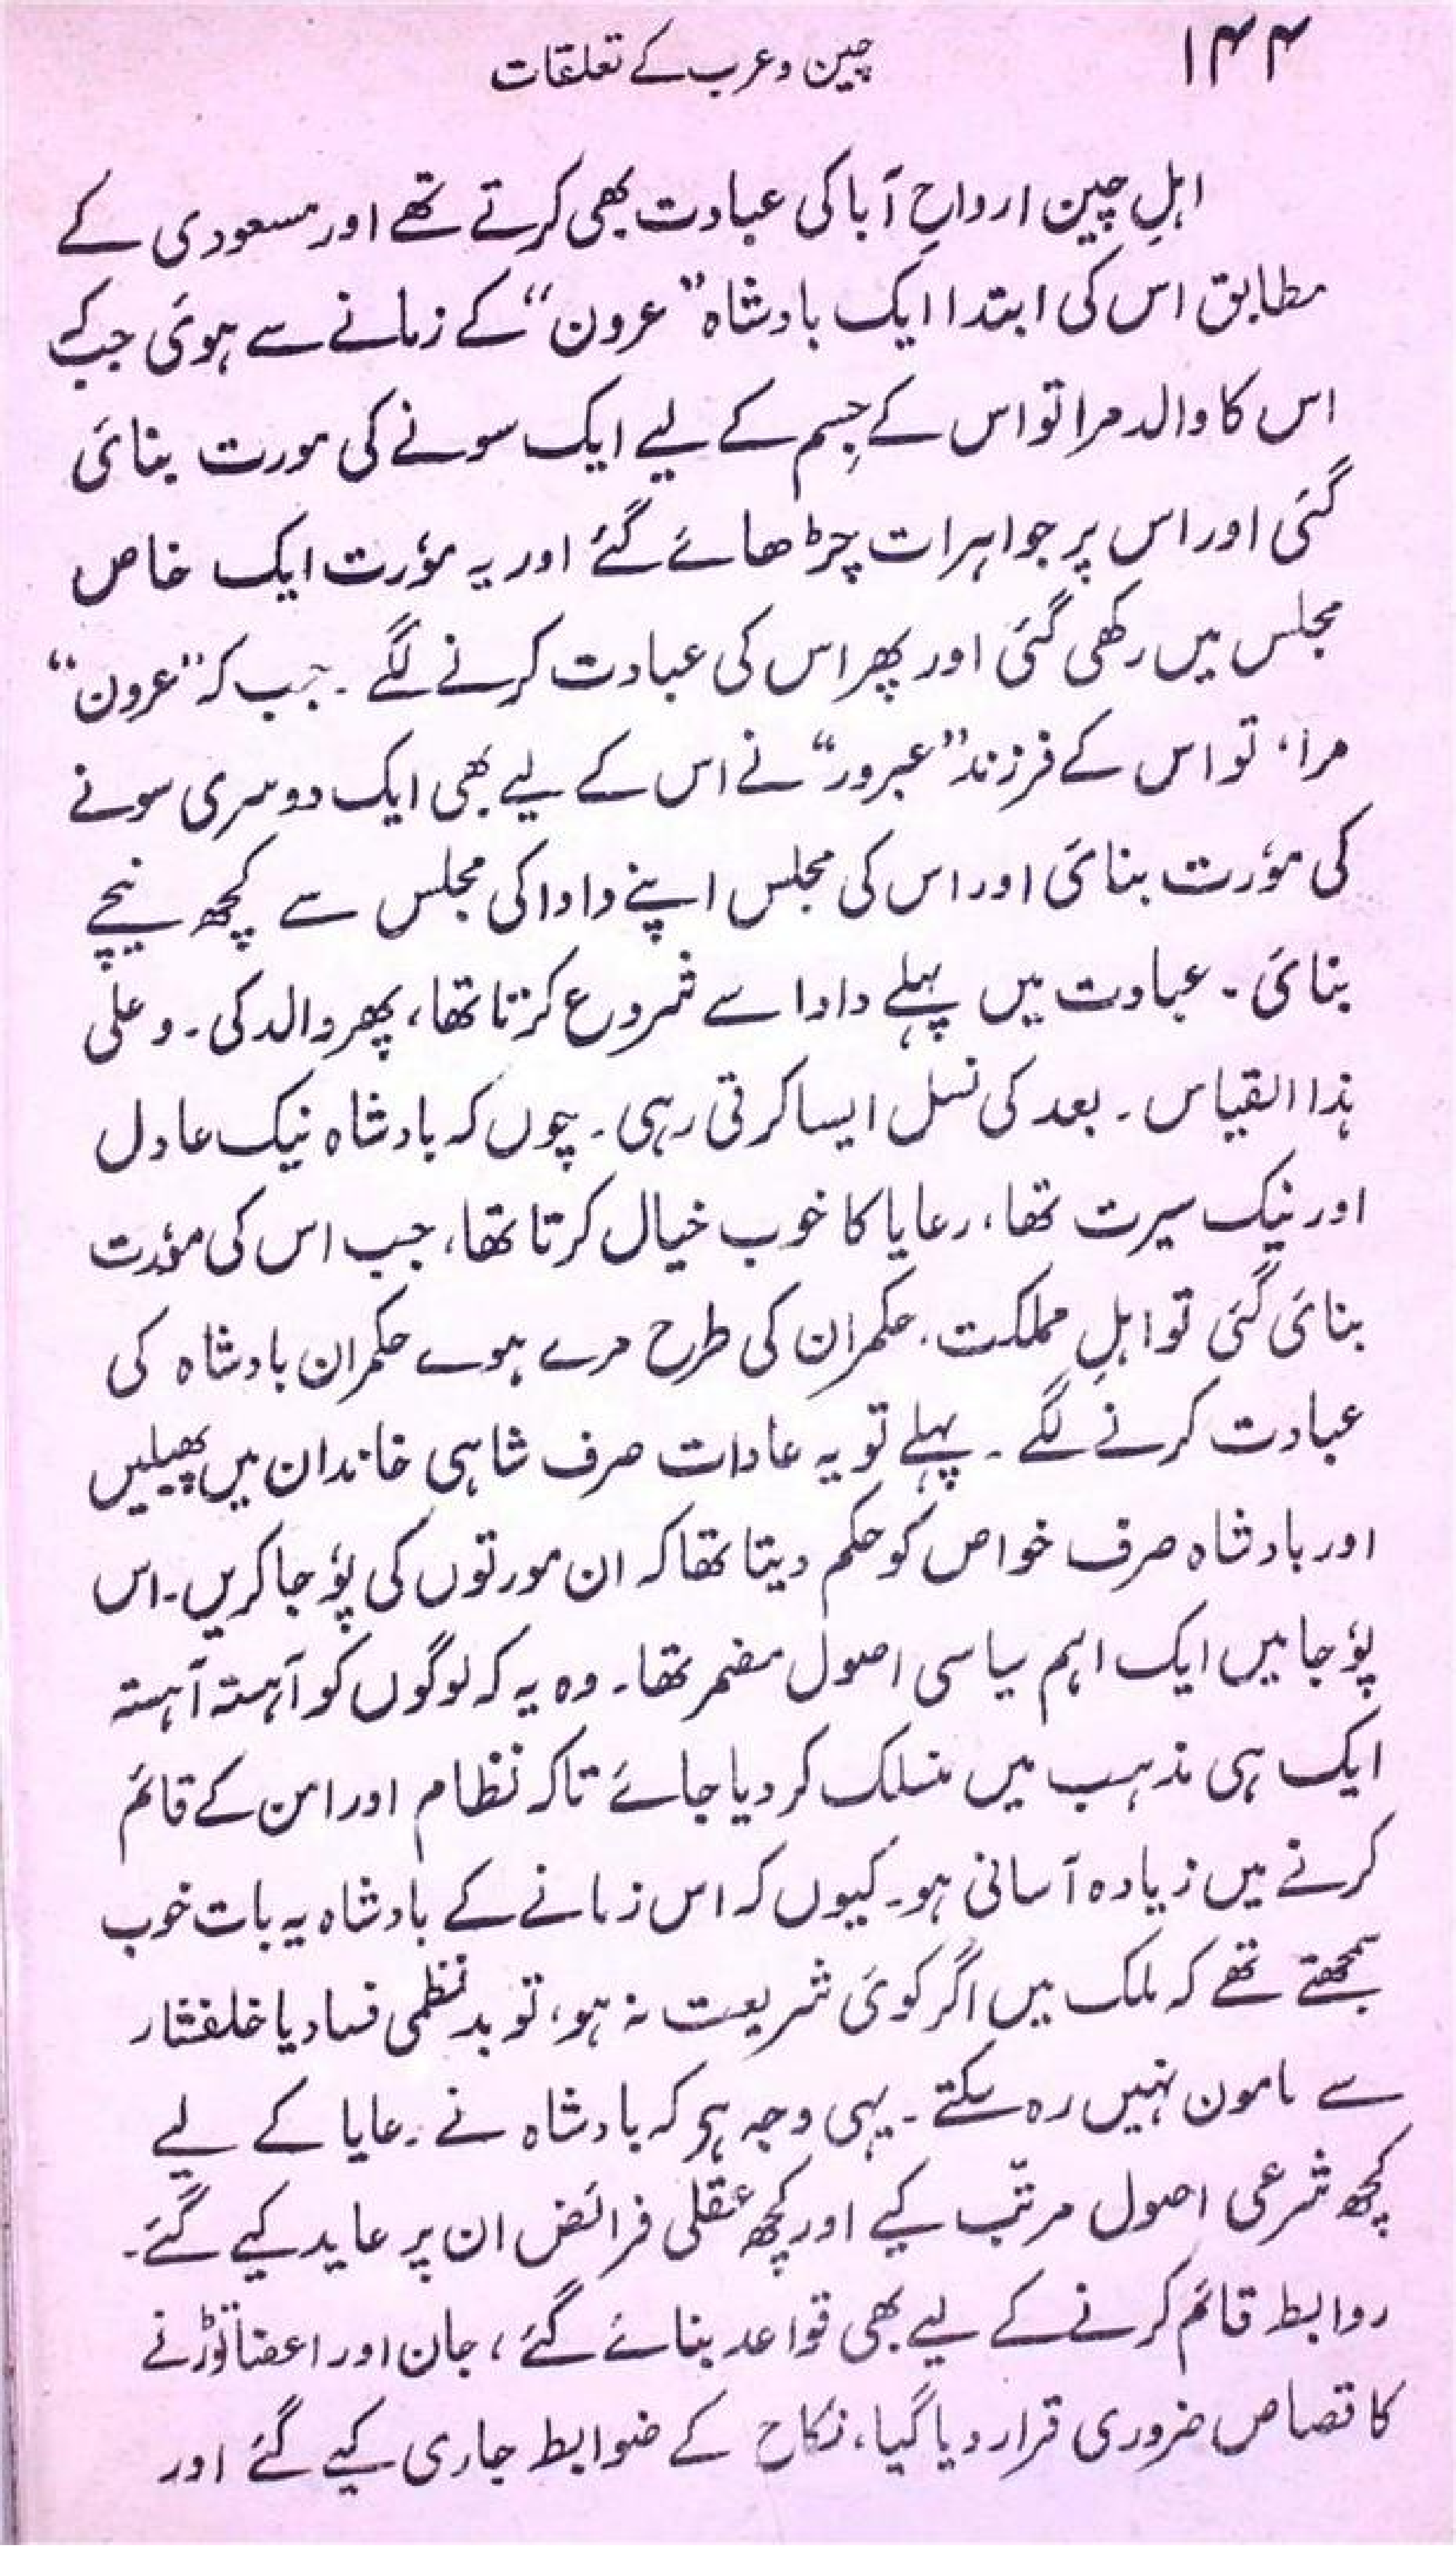 ۱۴۴
چین و عرب کے تعلقات
اہلِ چین ارواحِ آبا کی عبادت بھی کرتے تھے اور مسعودی کے
مطابق اس کی ابتدا ایک بادشاہ ”عرون“ کے زمانے سے ہوئی جب کہ
اس کا والد مرا تو اس کے جسم کے لیے ایک سونے کی مورت بنائی
گئی اور اس پر جواہرات چڑھائے گئے اور یہ مؤرت ایک خاص
مجلس میں رکھی گئی اور پھر اس کی عبادت کرنے لگے ۔ جب کہ ”عرون“
مرا، تو اس کے فرزند ”عبرور“ نے اس کے لیے بھی ایک دوسری سونے
کی مؤرت بنائی اور اس کی مجلس اپنے دادا کی مجلس سے کچھ نیچے
بنائی ۔ عبادت میں پہلے دادا سے شروع کرتا تھا، پھر والد کی ۔ و علی
ہذا القیاس ۔ بعد کی نسل ایسا کرتی رہی ۔ چوں کہ بادشاہ نیک عادل
اور نیک سیرت تھا، رعایا کا خوب خیال کرتا تھا، جب اس کی مؤرت
بنائی گئی تو اہلِ مملکت، حکمران کی طرح مرے ہوے حکمران بادشاہ کی
عبادت کرنے لگے ۔ پہلے تو یہ عادات صرف شاہی خاندان میں پھیلیں
اور بادشاہ صرف خواص کو حکم دیتا تھا کہ ان مورتوں کی پؤجا کریں ۔ اس
پؤجا میں ایک اہم سیاسی اصول مضمر تھا ۔ وہ یہ کہ لوگوں کو آہستہ آہستہ
ایک ہی مذہب میں منسلک کر دیا جائے تاکہ نظام اور امن کے قائم
کرنے میں زیادہ آسانی ہو ۔ کیوں کہ اس زمانے کے بادشاہ یہ بات خوب
سمجھتے تھے کہ ملک میں اگر کوئی شریعت نہ ہو، تو بدنظمی فساد یا خلفشار
سے مامون نہیں رہ سکتے ۔ یہی وجہ ہو کہ بادشاہ نے رعایا کے لیے
کچھ شرعی اصول مرتّب کیے اور کچھ عقلی فرائض ان پر عاید کیے گئے ۔
روابط قائم کرنے کے لیے بھی قواعد بنائے گئے، جان اور اعضا توڑنے
کا قصاص ضروری قرار دیا گیا، نکاح کے ضوابط جاری کیے گئے اور